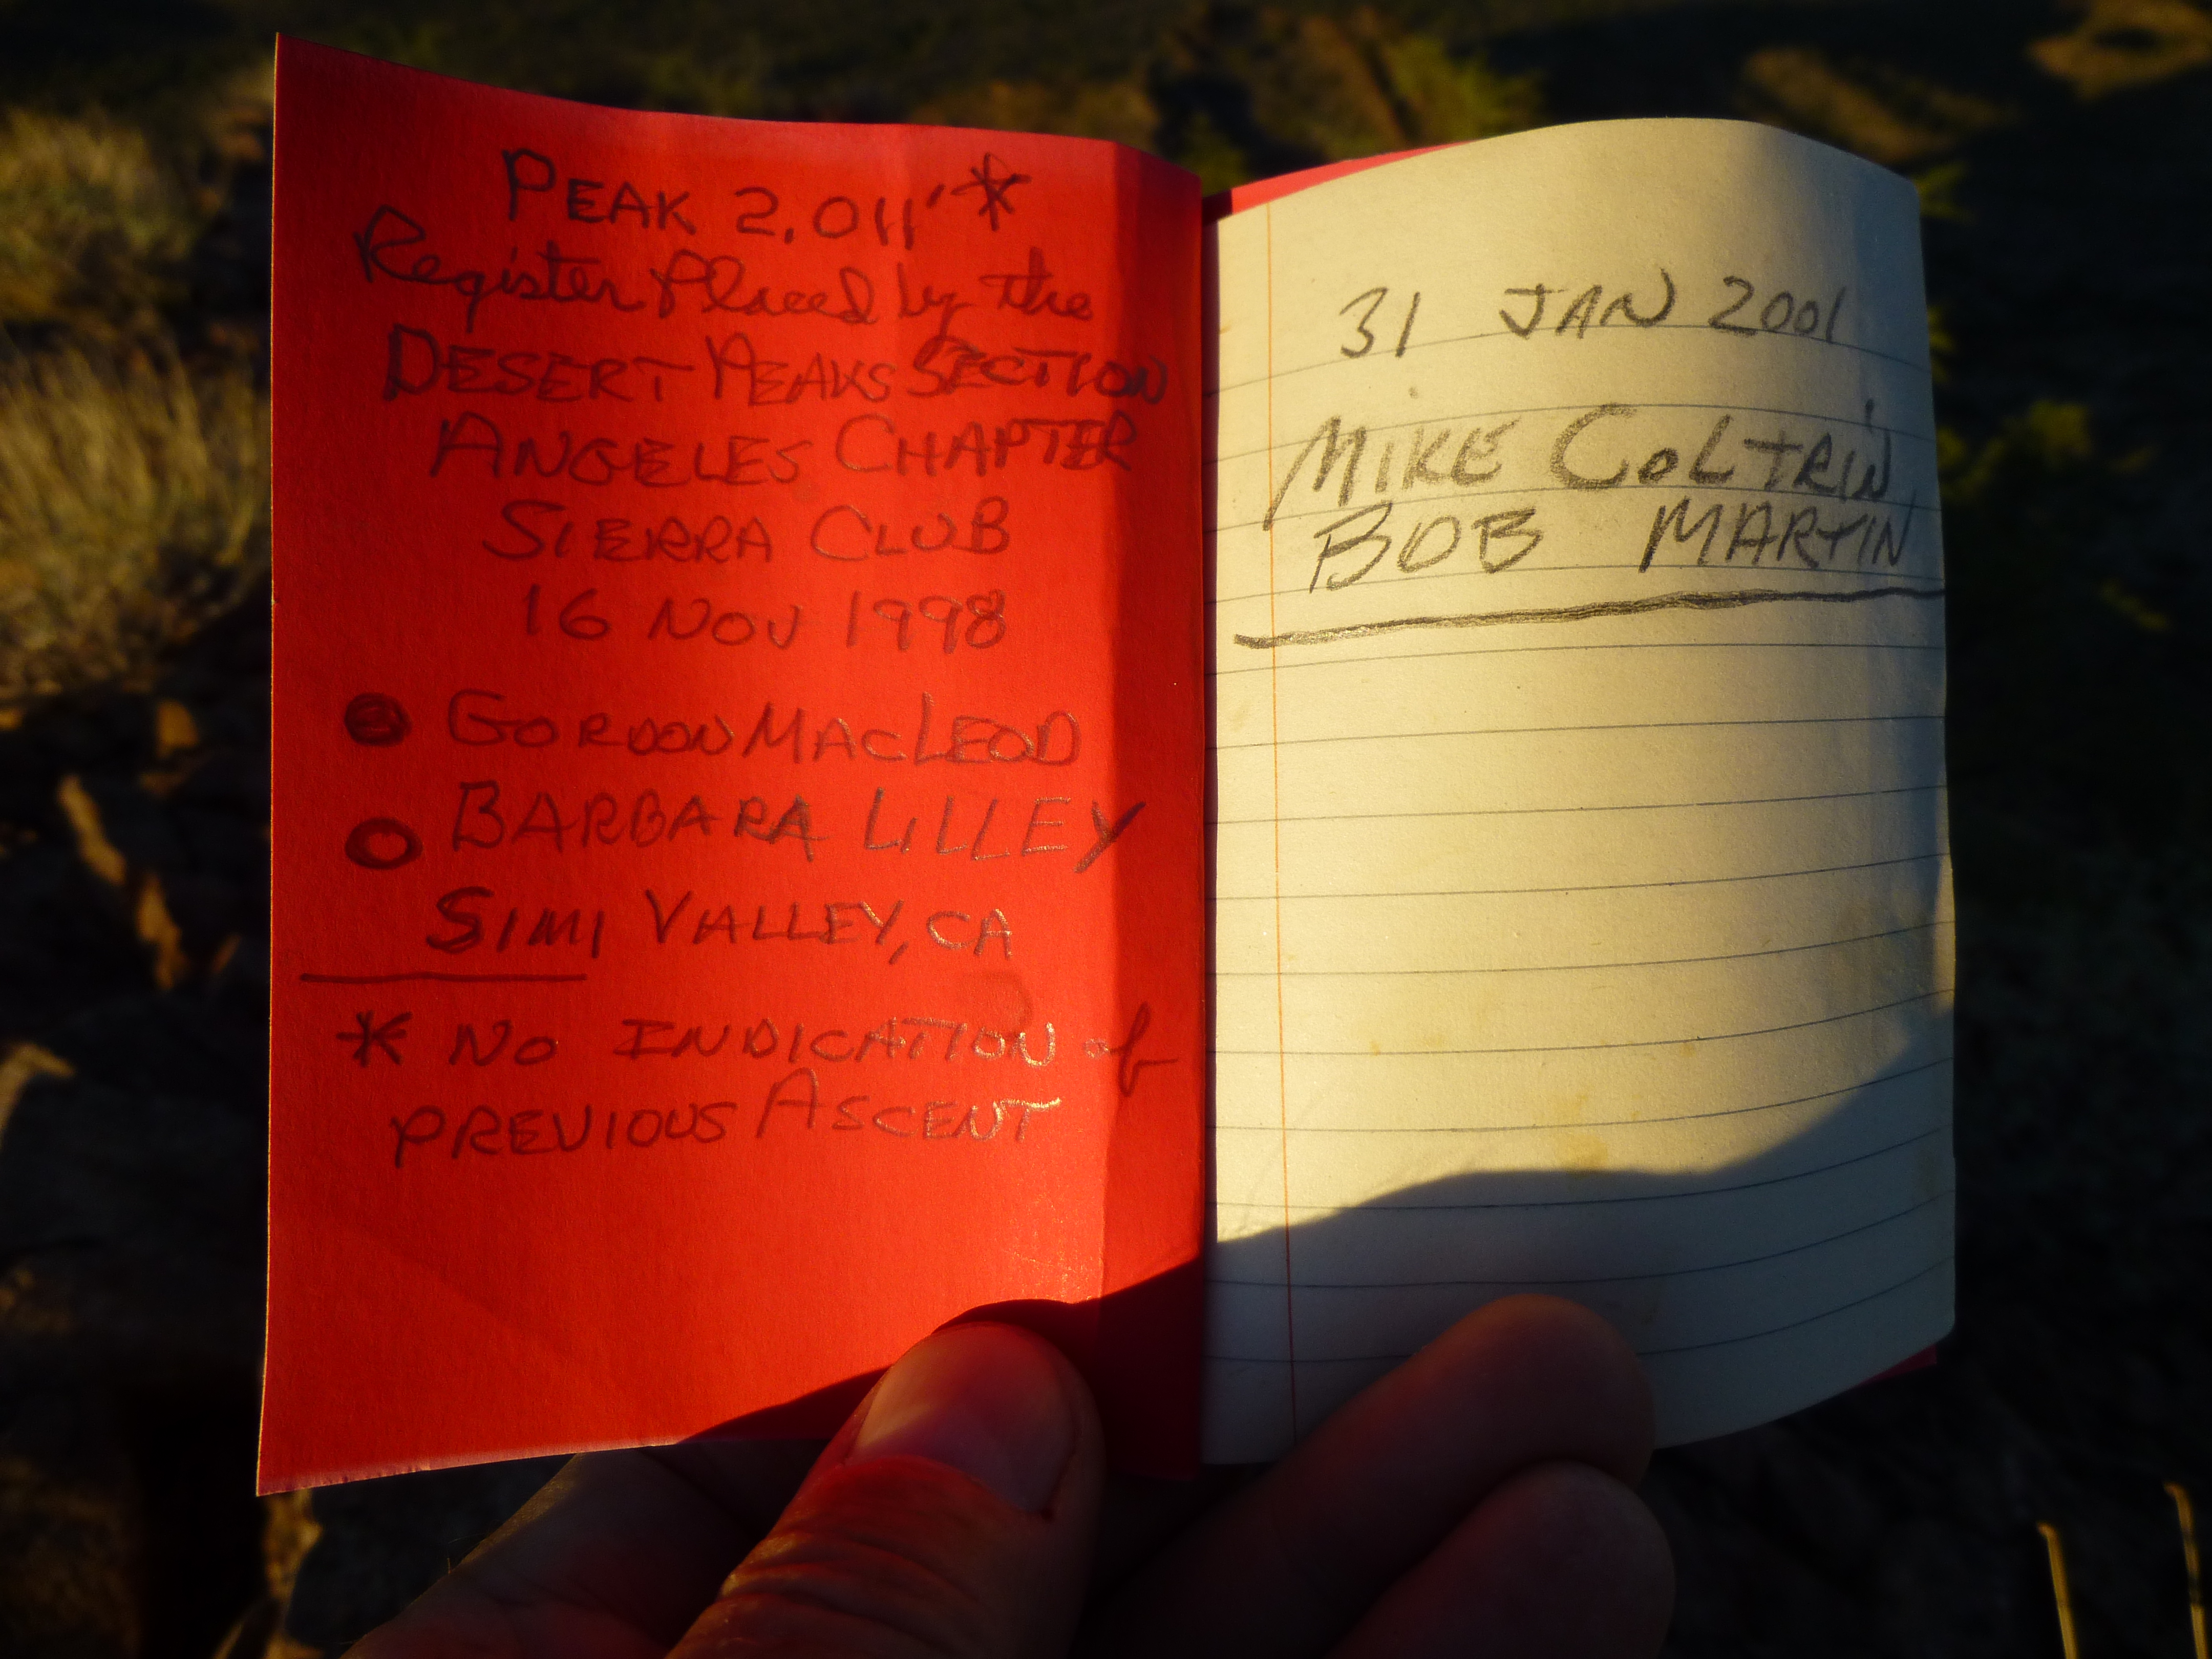 PEAK 2,011' *
Register placed by the
DESERT PEAKS SECTION
ANGELES CHAPTER
SIERRA CLUB
16 NOV 1998
GORDON MACLEOD
BARBARA LILLEY
SIMI VALLEY, CA
* NO INDICATION of
PREVIOUS ASCENT
31 JAN 2001
MIKE COLTRIN
BOB MARTIN